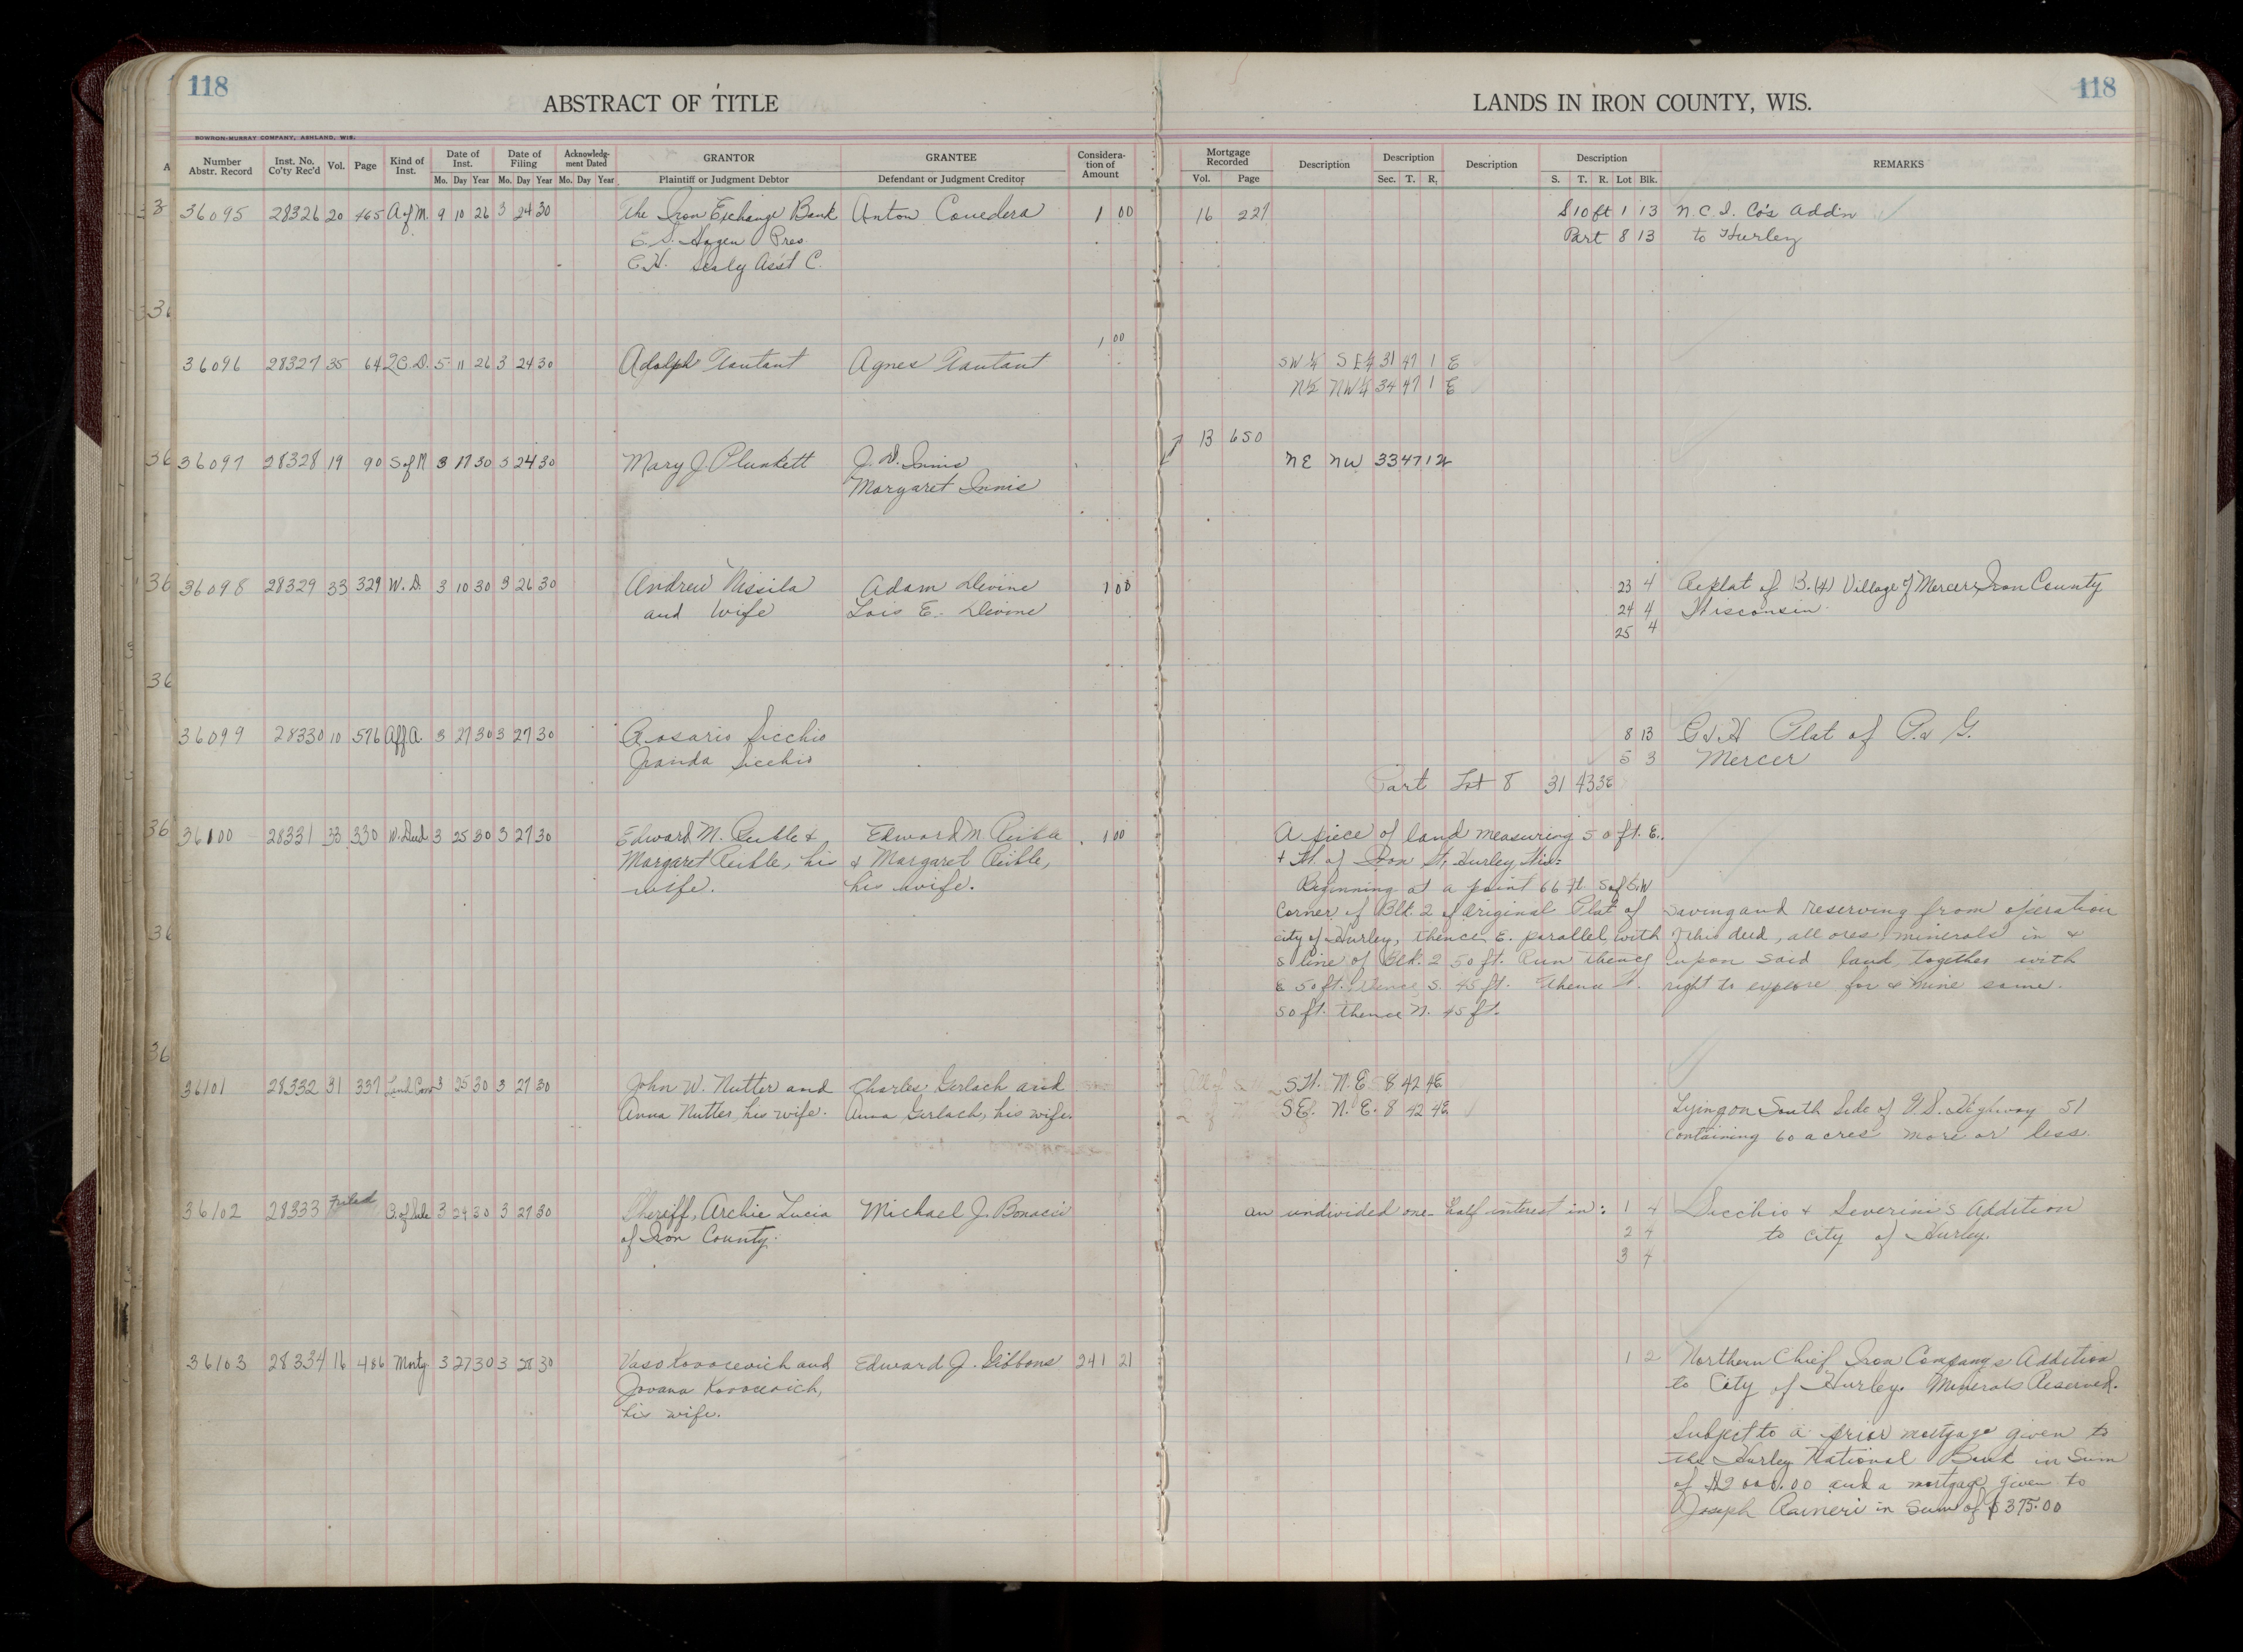 118
ABSTRACT OF TITLE
LANDS IN IRON COUNTY, WIS.
118
BOWRON-MURRAY COMPANY, ASHLAND, WIS.
Number Abstr. Record | Inst. No. Co'ty Rec'd | Vol. | Page | Kind of Inst. | Date of Inst. Mo. Day Year | Date of Filing Mo. Day Year | Acknowledgment Dated Mo. Day Year | GRANTOR Plaintiff or Judgment Debtor | GRANTEE Defendant or Judgment Creditor | Consideration of Amount | Mortgage Recorded Vol. Page | Description | Description Sec. T. R. | Description | Description S. T. R. Lot Blk. | REMARKS
36095 28326 20 465 A of M. 9 10 26 3 24 30 The Iron Exchange Bank Anton Couedera 1 00 16 227 S 10 ft 1 13 N.C.I. Co's Addn
E. S. Hagen Pres. Part 8 13 to Hurley
C.H. Sealy Ass't C.
1 00
36096 28327 35 64 2C.D. 5 11 26 3 24 30 Adolph Tautant Agnes Tautant SW¼ SE¼ 31 47 1 E
N½ NW¼ 34 47 1 E
13 650
36097 28328 19 90 S of M 3 17 30 3 24 30 Mary J. Plunkett J. D. Innis NE NW 33 47 1 W
Margaret Innis
36098 28329 33 329 W.D. 3 10 30 3 26 30 Andrew Nissila Adam Devine 1 00 23 4 Replat of B.(4) Village of Mercer, Iron County
and Wife Lois E. Devine 24 4 Wisconsin
25 4
36099 28330 10 576 Aff A. 3 27 30 3 27 30 Rosario Sicchio 8 13 G & H Plat of P. & G.
Jranda Sicchio 5 3 Mercer
Part Lot 8 31 43 3E
36100 28331 33 330 W. Deed 3 25 30 3 27 30 Edward N. Ruble & Edward N. Ruble 1 00 A piece of land measuring 50 ft. E.
Margaret Ruble, his & Margaret Ruble, & W. of Iron St, Hurley, Wis:
wife. his wife. Beginning at a point 66 ft. S of S.W
Corner of Blk. 2 of Original Plat of Saving and reserving from operation
city of Hurley, thence E. parallel with of this deed, all ores, minerals in &
S line of Blk. 2 50 ft. Run thence upon said land, together with
E 50 ft. thence S. 45 ft. thence W. right to explore for & mine same.
50 ft. thence N. 45 ft.
36101 28332 31 337 Land Con 3 25 30 3 27 30 John W. Nutter and Charles Gerlach and SW. N.E. 8 42 4E
Anna Nutter, his wife. Anna Gerlach, his wife. SE. N.E. 8 42 4E Lying on South Side of U.S. Highway 51
containing 60 acres more or less.
36102 28333 Filed B. of Sale 3 24 30 3 27 30 Sheriff, Archie Lucia Michael J. Bonacci an undivided one-half interest in: 1 4 Sicchio & Severini's Addition
of Iron County. 2 4 to city of Hurley.
3 4
36103 28334 16 486 Mortg. 3 27 30 3 28 30 Vaso Kovocevich and Edward J. Gibbons 241 21 1 2 Northern Chief Iron Company's Addition
Jovana Kovocevich, to City of Hurley. Minerals Reserved.
his wife.
Subject to a prior mortgage given to
the Hurley National Bank in Sum
of $2000.00 and a mortgage given to
Joseph Raineri in Sum of $375.00